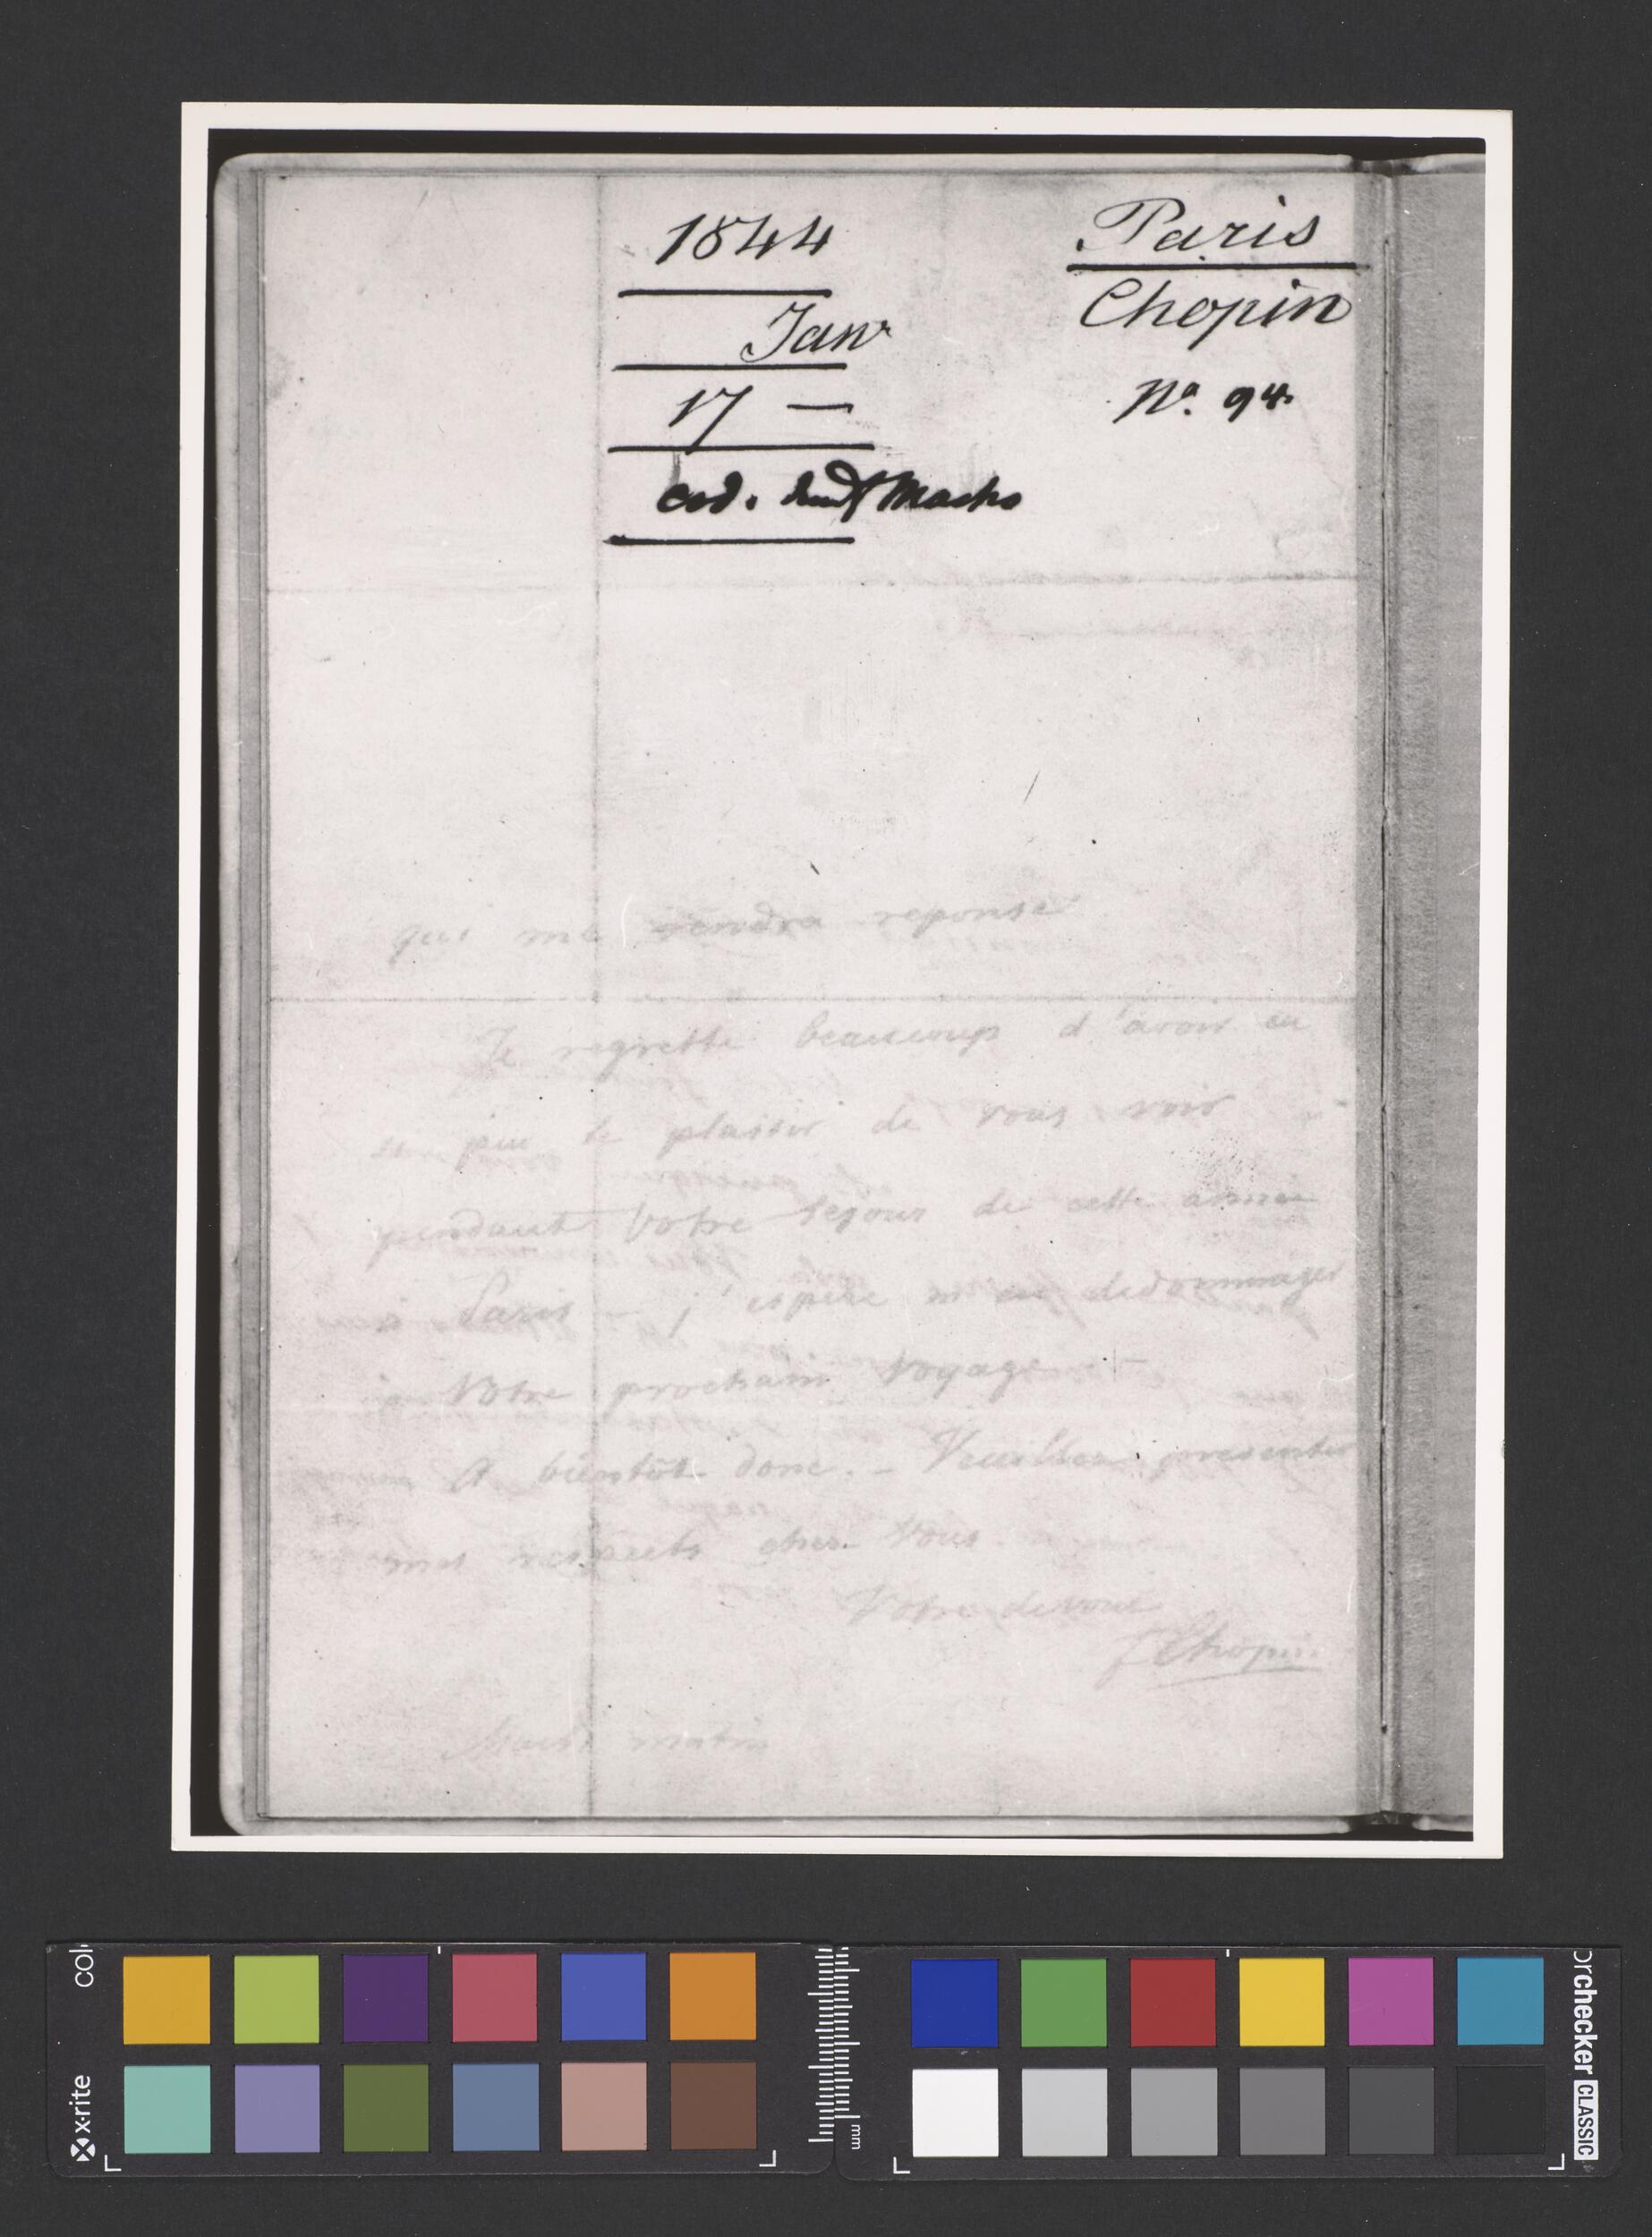 1844
Paris
Janv
Chopin
17 —
No. 94.
eod.
qui me rendra reponse
Je regrette beaucoup d'avoir eu
si peu le plaisir de vous voir
pendant Votre sejour de cette année
à Paris – j'espère m'en dedommager
à Votre prochain voyage –
A bientôt donc. – Veuillez presenter
mes respects chez Vous.
Votre devoué
FChopin
Mardi matin
x-rite
col
mm
orchecker
CLASSIC